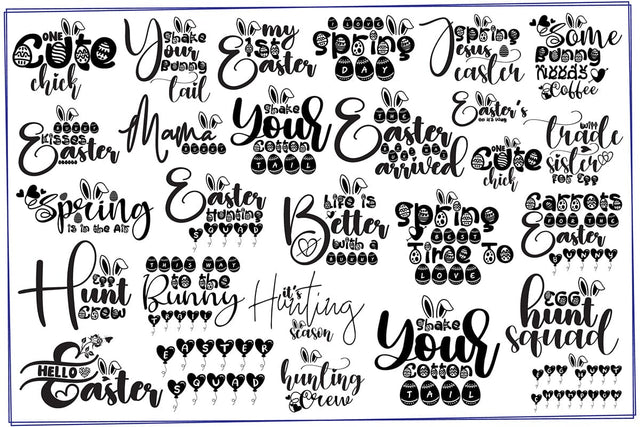 ONE
Cute
chick
Shake
Your
Bunny
tail
my
1st
Easter
Spring
DAY
Spring
Jesus
easter
Some
Bunny
Needs
Coffee
Kisses
Easter
Mama
Shake
Your
Cotton
TAIL
Easter
arrived
Easter's
on its way
ONE
Cute
chick
will
trade
sister
for Egg
Spring
is in the Air
Easter
Hunting
SQUAD
Life is
Better
with a
Spring
Time To
LOVE
Carrots
Easter
Egg
Hunt
Crew
THIS WAY
to the
Bunny
it's
Hunting
season
Shake
Your
Cotton
TAIL
EGG
hunt
squad
HELLO
Easter
EASTER
SQUAD
hunting
Crew